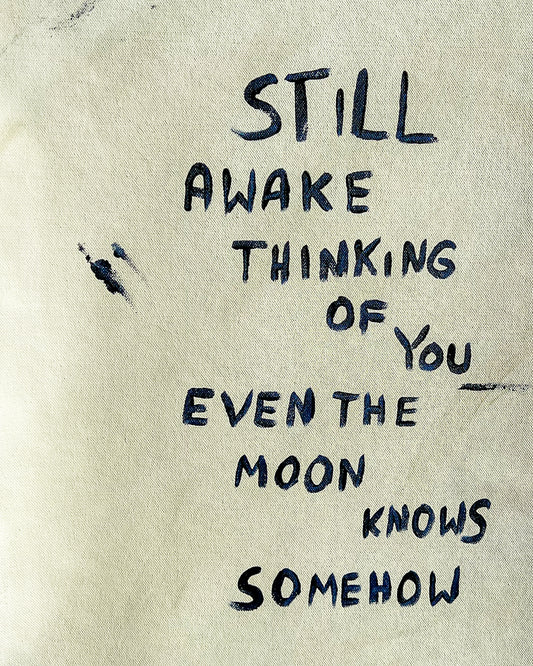 STiLL
AWAKE
THINKiNG
OF
YOU
EVEN THE
MOON
KNOWS
SOMEHOW